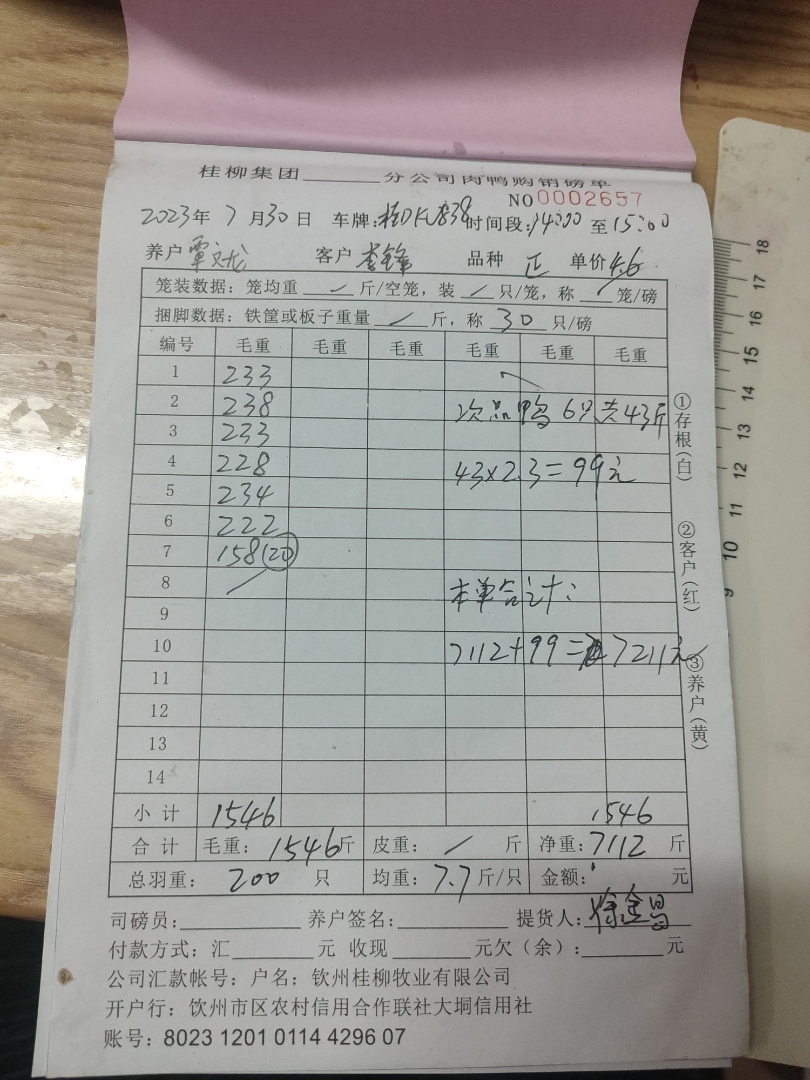 桂柳集团______分公司肉鸭购销磅单
NO 0002657
2023年 7月30日 车牌:桂DKU838 时间段:14:00至15:00
养户 覃文龙 客户 李锋 品种 正 单价 4.6
笼装数据：笼均重 / 斤/空笼，装 / 只/笼，称 / 笼/磅
捆脚数据：铁筐或板子重量 / 斤，称 30 只/磅
编号 毛重 毛重 毛重 毛重 毛重 毛重
1 233
2 238 次品鸭 6只共43斤
3 233
4 228 43×2.3=99元
5 234
6 222
7 158(20)
8 本单合计:
9
10 7112+99= 7211元
11
12
13
14
小计 1546 1546
合计 毛重: 1546斤 皮重: / 斤 净重: 7112 斤
总羽重: 200 只 均重: 7.7斤/只 金额: 元
司磅员:________ 养户签名:________ 提货人:徐金昌
付款方式：汇______元 收现______元欠（余）:______元
公司汇款帐号：户名：钦州桂柳牧业有限公司
开户行：饮州市区农村信用合作联社大垌信用社
账号：8023 1201 0114 4296 07
①存根(白)
②客户(红)
③养户(黄)
18
17
16
15
14
13
12
11
10
9